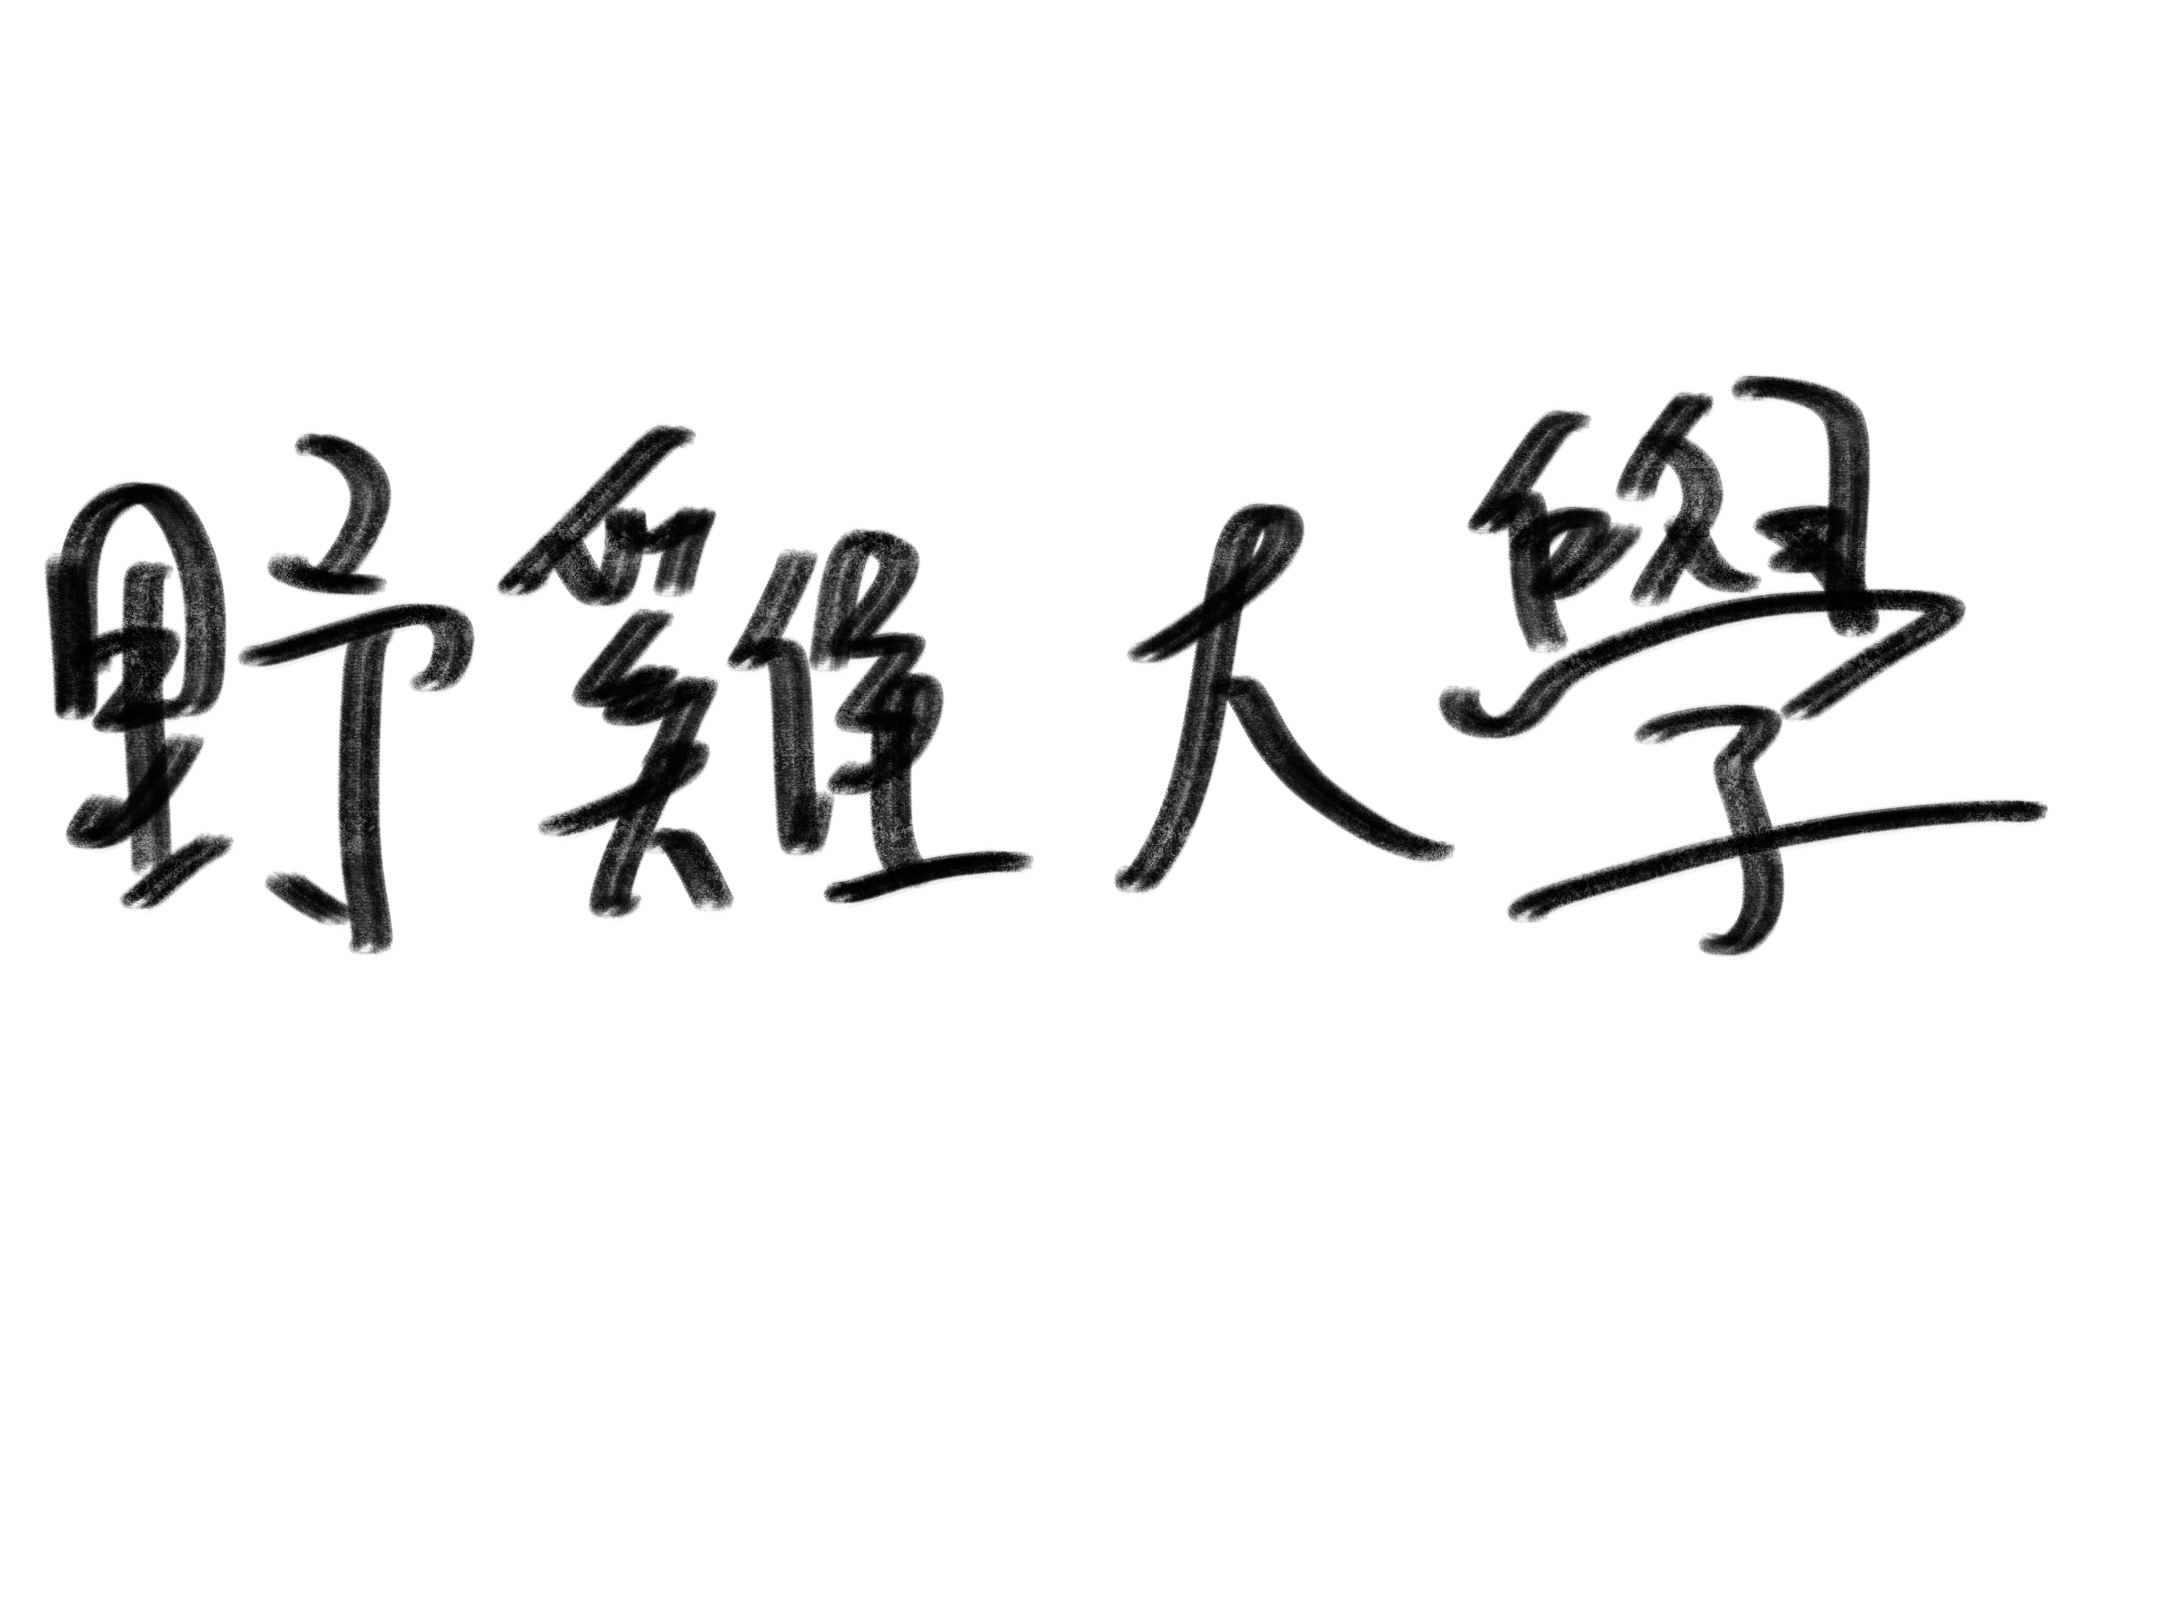 野雞大學